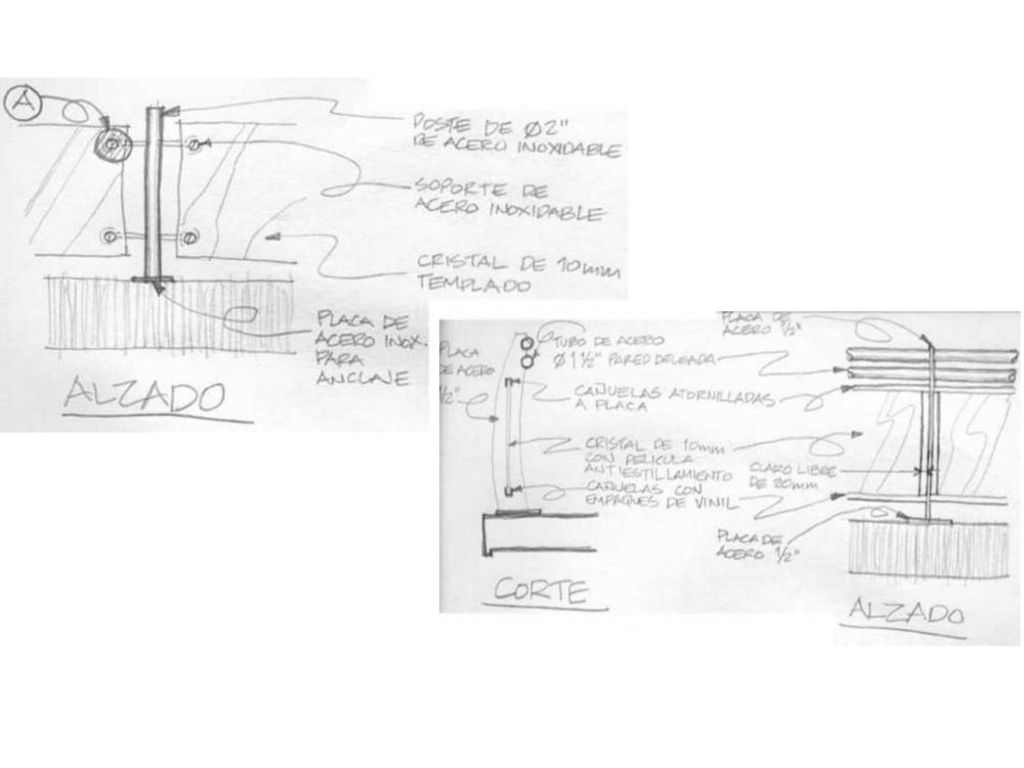 A
POSTE DE Ø2"
DE ACERO INOXIDABLE
SOPORTE DE
ACERO INOXIDABLE
CRISTAL DE 10mm
TEMPLADO
PLACA DE
ACERO INOX.
PARA
ANCLAJE
ALZADO
PLACA
DE ACERO
1/2"
TUBO DE ACERO
Ø 1 1/2" PARED DELGADA
CAÑUELAS ATORNILLADAS
A PLACA
CRISTAL DE 10mm
CON PELICULA
ANTIESTILLAMIENTO
CAÑUELAS CON
EMPAQUES DE VINIL
CORTE
PLACA DE
ACERO 1/2"
CLARO LIBRE
DE 20mm
PLACA DE
ACERO 1/2"
ALZADO